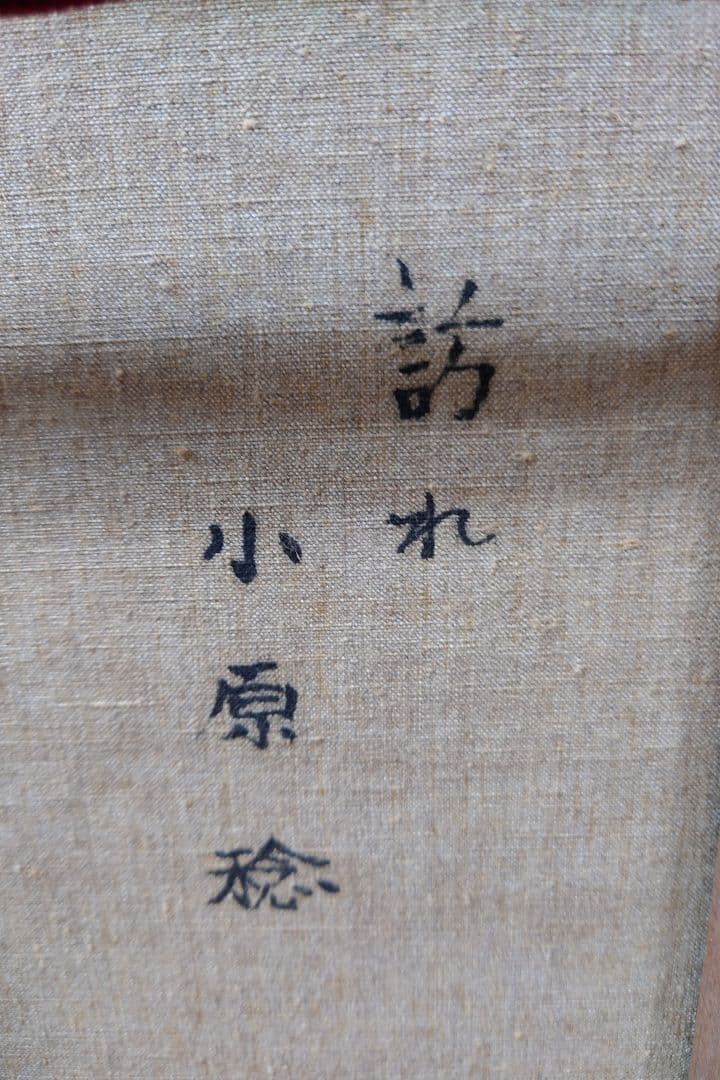 訪れ
小原稔